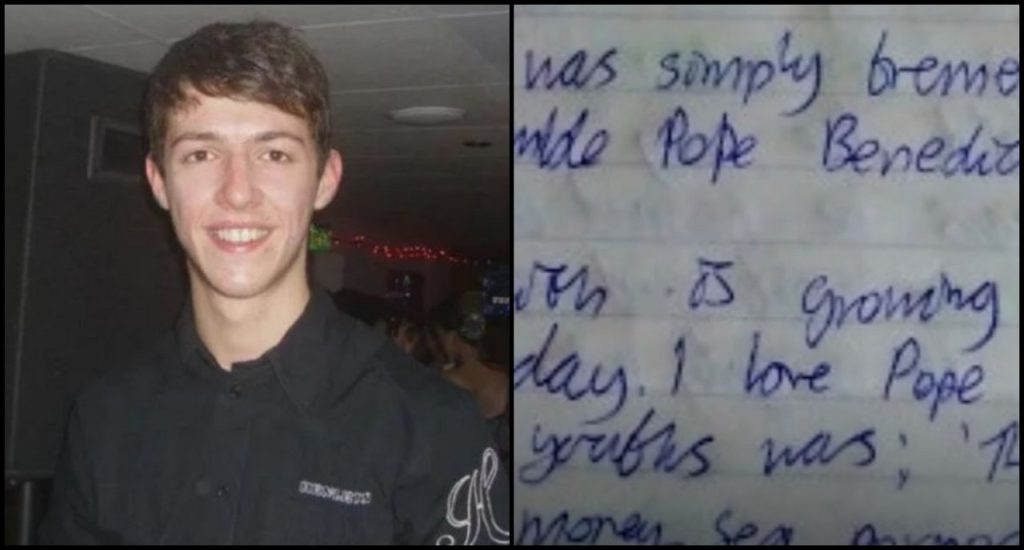 was simply treme
mble Pope Benedic
ith is growing
day. I love Pope
youths was; 'Th
money, sex,